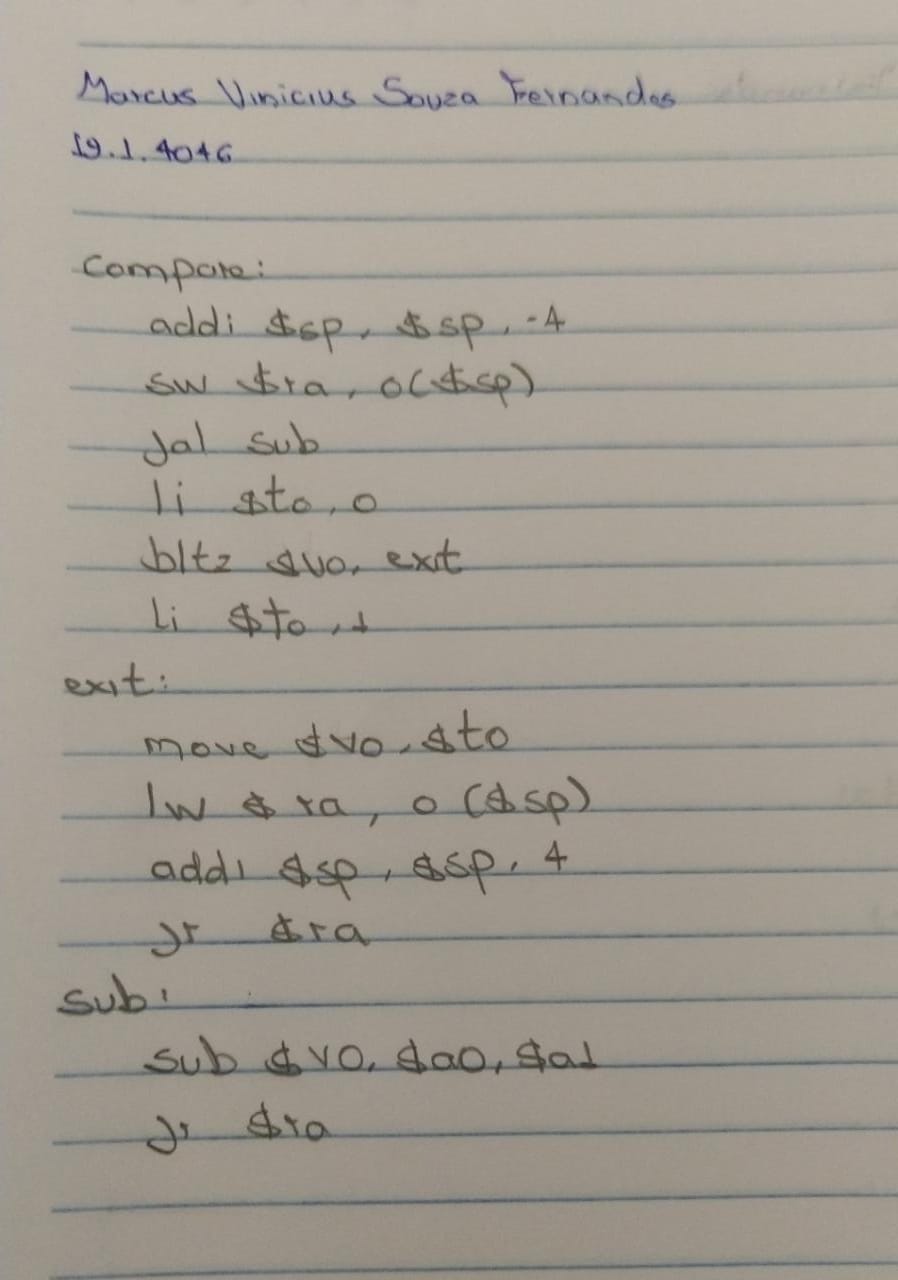 Marcus Vinicius Souza Fernandes
19.1.4046
Compare:
addi $sp, $sp, -4
sw $ra, 0($sp)
jal sub
li $t0, 0
bltz $v0, exit
li $t0, 1
exit:
move $v0, $t0
lw $ra, 0 ($sp)
addi $sp, $sp, 4
jr $ra
sub:
sub $v0, $a0, $a1
jr $ra